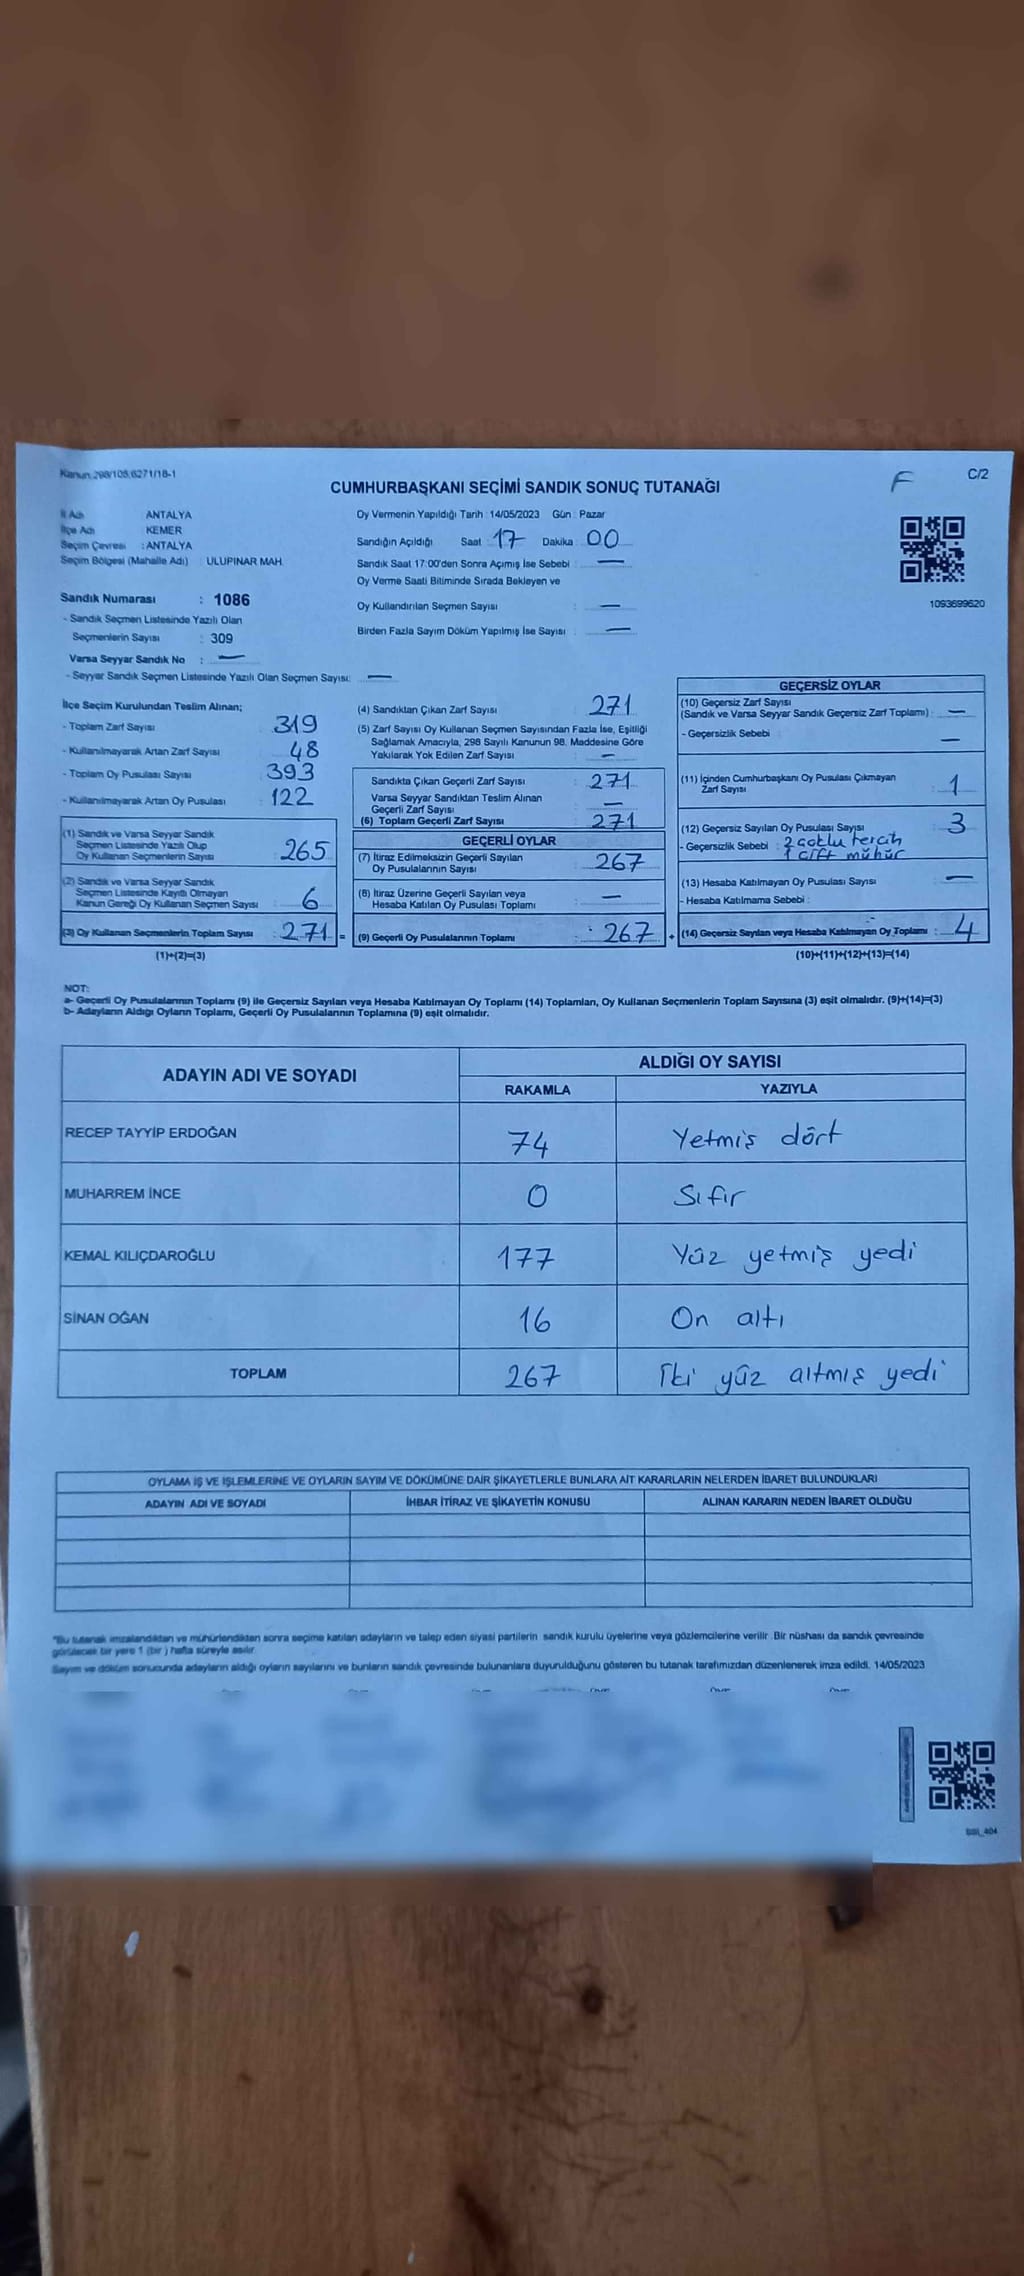 Kanun:298/105;6271/18-1
F
C/2
CUMHURBAŞKANI SEÇİMİ SANDIK SONUÇ TUTANAĞI
İl Adı ANTALYA
İlçe Adı KEMER
Seçim Çevresi : ANTALYA
Seçim Bölgesi (Mahalle Adı) : ULUPINAR MAH.
Sandık Numarası : 1086
- Sandık Seçmen Listesinde Yazılı Olan
Seçmenlerin Sayısı : 309
Varsa Seyyar Sandık No : —
- Seyyar Sandık Seçmen Listesinde Yazılı Olan Seçmen Sayısı: —
Oy Vermenin Yapıldığı Tarih : 14/05/2023 Gün : Pazar
Sandığın Açıldığı Saat : 17 Dakika : 00
Sandık Saat 17:00'den Sonra Açımış İse Sebebi : —
Oy Verme Saati Bitiminde Sırada Bekleyen ve
Oy Kullandırılan Seçmen Sayısı : —
Birden Fazla Sayım Döküm Yapılmış İse Sayısı : —
1093699620
İlçe Seçim Kurulundan Teslim Alınan;
- Toplam Zarf Sayısı : 319
- Kullanılmayarak Artan Zarf Sayısı : 48
- Toplam Oy Pusulası Sayısı : 393
- Kullanılmayarak Artan Oy Pusulası : 122
(1) Sandık ve Varsa Seyyar Sandık
Seçmen Listesinde Yazılı Olup
Oy Kullanan Seçmenlerin Sayısı : 265
(2) Sandık ve Varsa Seyyar Sandık
Seçmen Listesinde Kayıtlı Olmayan
Kanun Gereği Oy Kullanan Seçmen Sayısı : 6
(3) Oy Kullanan Seçmenlerin Toplam Sayısı : 271 =
(1)+(2)=(3)
(4) Sandıktan Çıkan Zarf Sayısı : 271
(5) Zarf Sayısı Oy Kullanan Seçmen Sayısından Fazla İse, Eşitliği
Sağlamak Amacıyla, 298 Sayılı Kanunun 98. Maddesine Göre
Yakılarak Yok Edilen Zarf Sayısı : —
Sandıkta Çıkan Geçerli Zarf Sayısı : 271
Varsa Seyyar Sandıktan Teslim Alınan
Geçerli Zarf Sayısı : —
(6) Toplam Geçerli Zarf Sayısı : 271
GEÇERLİ OYLAR
(7) İtiraz Edilmeksizin Geçerli Sayılan
Oy Pusulalarının Sayısı : 267
(8) İtiraz Üzerine Geçerli Sayılan veya
Hesaba Katılan Oy Pusulası Toplamı : —
(9) Geçerli Oy Pusulalarının Toplamı : 267 +
GEÇERSİZ OYLAR
(10) Geçersiz Zarf Sayısı
(Sandık ve Varsa Seyyar Sandık Geçersiz Zarf Toplamı) : —
- Geçersizlik Sebebi : —
(11) İçinden Cumhurbaşkanı Oy Pusulası Çıkmayan
Zarf Sayısı : 1
(12) Geçersiz Sayılan Oy Pusulası Sayısı : 3
- Geçersizlik Sebebi : 2 çoklu tercih
1 çift mühür
(13) Hesaba Katılmayan Oy Pusulası Sayısı : —
- Hesaba Katılmama Sebebi :
(14) Geçersiz Sayılan veya Hesaba Katılmayan Oy Toplamı : 4
(10)+(11)+(12)+(13)=(14)
NOT:
a- Geçerli Oy Pusulalarının Toplamı (9) ile Geçersiz Sayılan veya Hesaba Katılmayan Oy Toplamı (14) Toplamları, Oy Kullanan Seçmenlerin Toplam Sayısına (3) eşit olmalıdır. (9)+(14)=(3)
b- Adayların Aldığı Oyların Toplamı, Geçerli Oy Pusulalarının Toplamına (9) eşit olmalıdır.
ADAYIN ADI VE SOYADI
ALDIĞI OY SAYISI
RAKAMLA YAZIYLA
RECEP TAYYİP ERDOĞAN 74 Yetmiş dört
MUHARREM İNCE 0 Sıfır
KEMAL KILIÇDAROĞLU 177 Yüz yetmiş yedi
SİNAN OĞAN 16 On altı
TOPLAM 267 İki yüz altmış yedi
OYLAMA İŞ VE İŞLEMLERİNE VE OYLARIN SAYIM VE DÖKÜMÜNE DAİR ŞİKAYETLERLE BUNLARA AİT KARARLARIN NELERDEN İBARET BULUNDUKLARI
ADAYIN ADI VE SOYADI İHBAR İTİRAZ VE ŞİKAYETİN KONUSU ALINAN KARARIN NEDEN İBARET OLDUĞU
*Bu tutanak imzalandıktan ve mühürlendikten sonra seçime katılan adayların ve talep eden siyasi partilerin sandık kurulu üyelerine veya gözlemcilerine verilir. Bir nüshası da sandık çevresinde
görülecek bir yere 1 (bir ) hafta süreyle asılır.
Sayım ve döküm sonucunda adayların aldığı oyların sayılarını ve bunların sandık çevresinde bulunanlara duyurulduğunu gösteren bu tutanak tarafımızdan düzenlenerek imza edildi. 14/05/2023